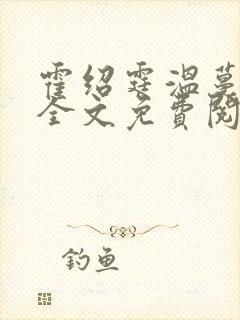 霍绍霆温蔓
全文免费阅
钓鱼